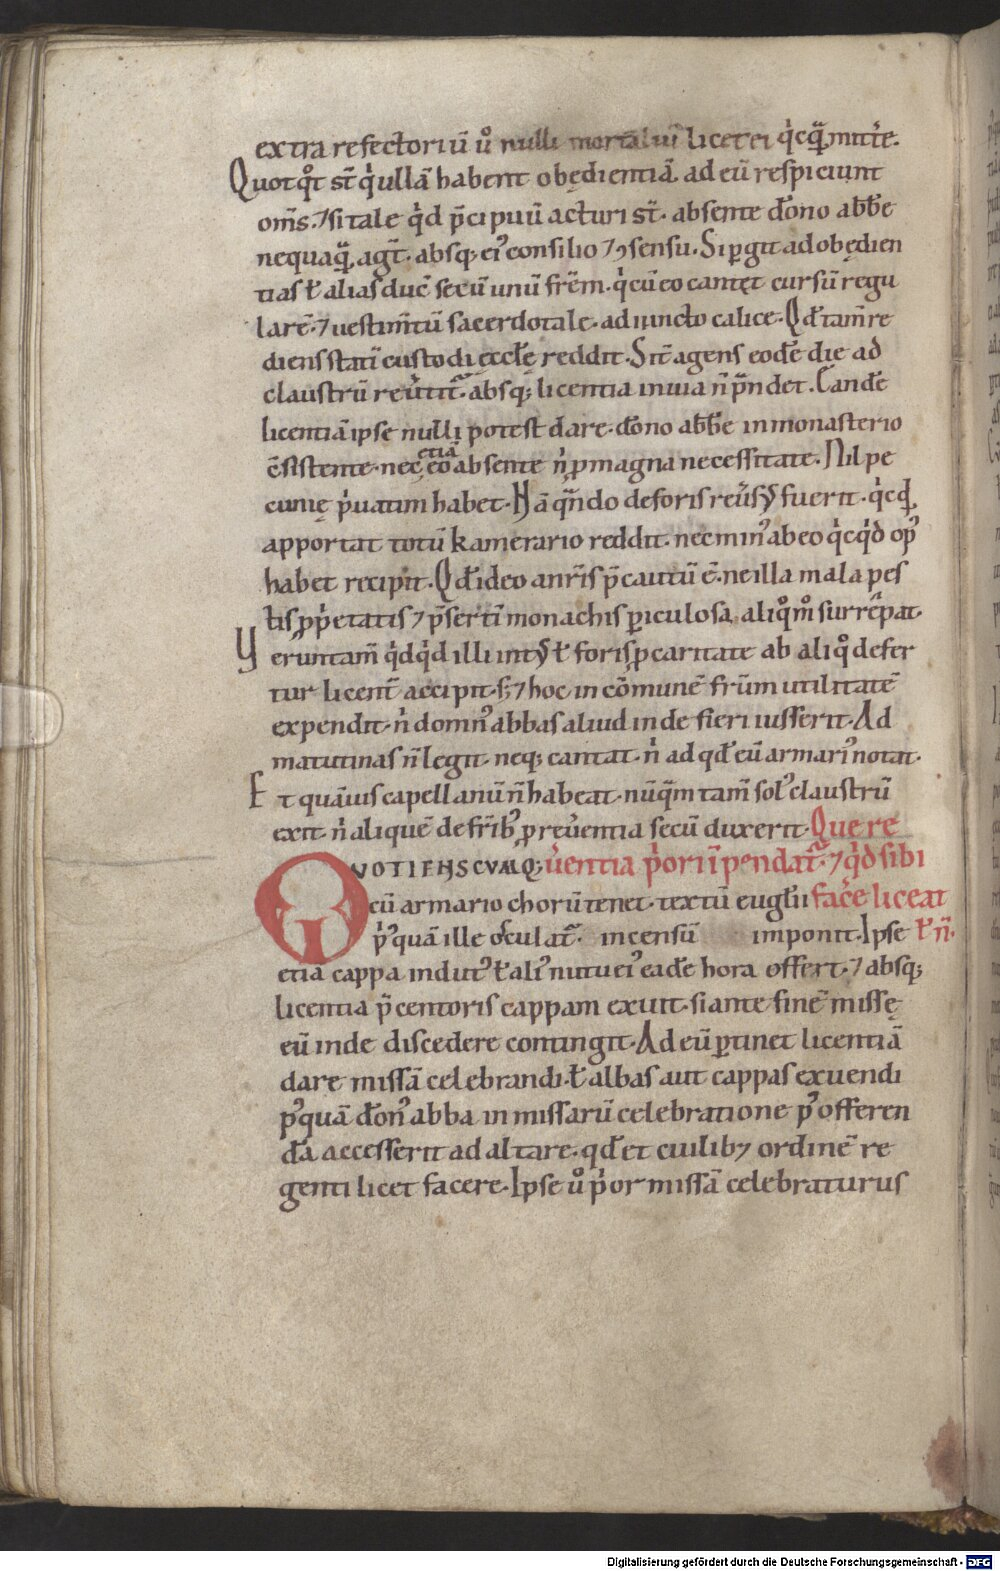 extra refectoriū ů nulli mortaliū licet ei q̇cq̄ mitt̾e.
Quotq̊t st̄ q̇ ullā habent obędientiā ad eū respiciunt
om̄s. ⁊ si tale q̇d p̄cipuū acturi st̄. absente dōno abb̄e
nequaq̄ agt̄. absq; ei᾽ consilio ⁊ ꝯsensu. Si ꝑgit ad obędien
tias ł alias duc̄ secū unū fr̄em. q̇ cū eo cantet cursū regu
larē. ⁊ uestim̄tū sacerdotale. adiuncto calice. Qd̄ tam̄ re
diens statī custodi ęccłę reddit. Sit̄ agens eodē die ad
claustrū reůtit᷑. absq; licentia in uia n̄ p̄ndet. Eandē
licentiā ipse nulli potest dare. dōno abb̄e in monasterio
ꝯsistente. nec etiā eo absente n̄ ꝑ magna necessitate. Nil pe
cunię ṗuatim habet. Nā q̄ndo deforis reůsꝰ fuerit. q̇cq̇d
apportat totū kamerario reddit. nec min᾽ ab eo q̇cq̇d op᾽
habet recipit. Qd̄ ideo a nr̄is p̄cautū ē. ne illa mala pes
tis ꝓṗetatis ⁊ p̄sertī monachis ꝑiculosa aliq̊m̊ surrēpat.
Veruntam̄ q̇dq̇d illi intꝰ ł foris ꝓ caritate ab aliq̊ defer
tur licent̄ accipit. s; ⁊ hoc in cōmunē fr̄um utilitatē
expendit. n̄ domn᾽ abbas aliud inde fieri iusserit. Ad
matutinas n̄ legit. neq; cantat. n̄ ad qd̄ eū armari᾽ notat.
Et quāuis capellanū n̄ habeat. nūq̄m tam̄ sol᾽ claustrū
exit. n̄ aliquē de fr̄ib᾽ ꝓ reůentia secū duxerit. Que re
QUOTIENSCUMQ; ůentia ṗori īpendat᷑. ⁊ q̇d sibi
cū armario chorū tenet. textū eugłii fac̄e liceat
p᾽quā ille osculat᷑. incensū imponit. Ipse ł n̄.
etiā cappa indut᾽ ł ali᾽ nutu ei᾽ eadē hora offert. ⁊ absq;
licentia p̄centoris cappam exuit. si ante finē missę
eū inde discedere contingit. Ad eū ꝑtinet licentiā
dare missā celebrandi. ł albas aut cappas exuendi
p᾽quā dōn᾽ abba in missarū celebratione p᾽ offeren
dā accesserit ad altare. qd̄ et cuilibꝫ ordinē re
genti licet facere. Ipse ů ṗor missā celebraturus
Digitalisierung gefördert durch die Deutsche Forschungsgemeinschaft - DFG